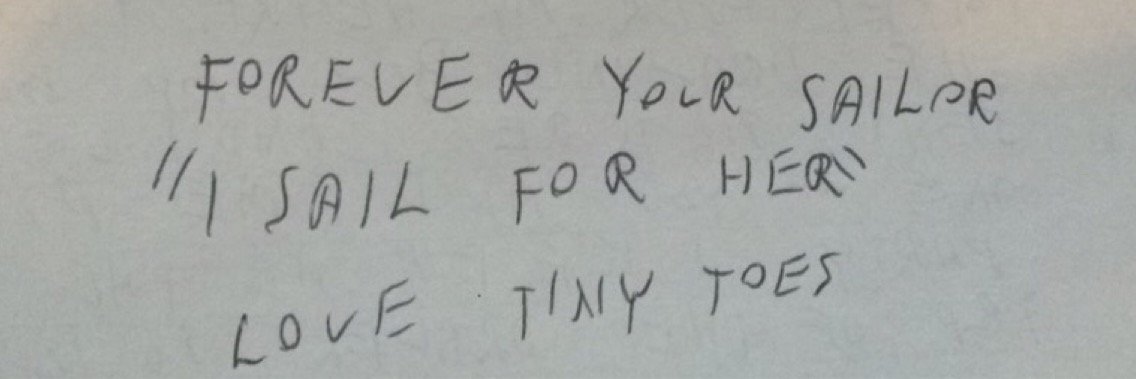 FOREVER YOUR SAILOR
"I SAIL FOR HER"
LOVE TINY TOES